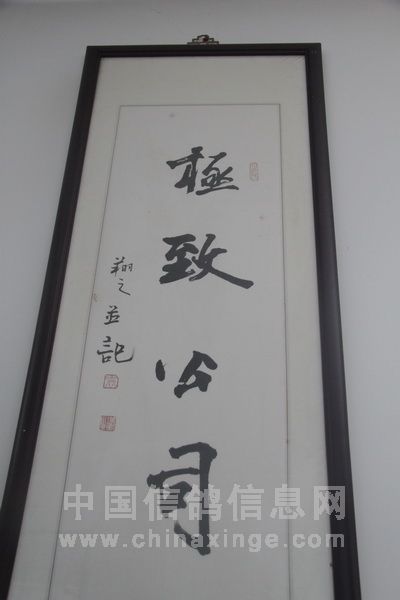 極致公司
翔之並記
中国信鸽信息网
www.chinaxinge.com